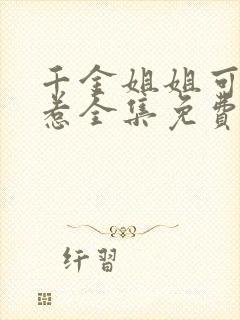 千金姐姐可
惹全集免費
纤習